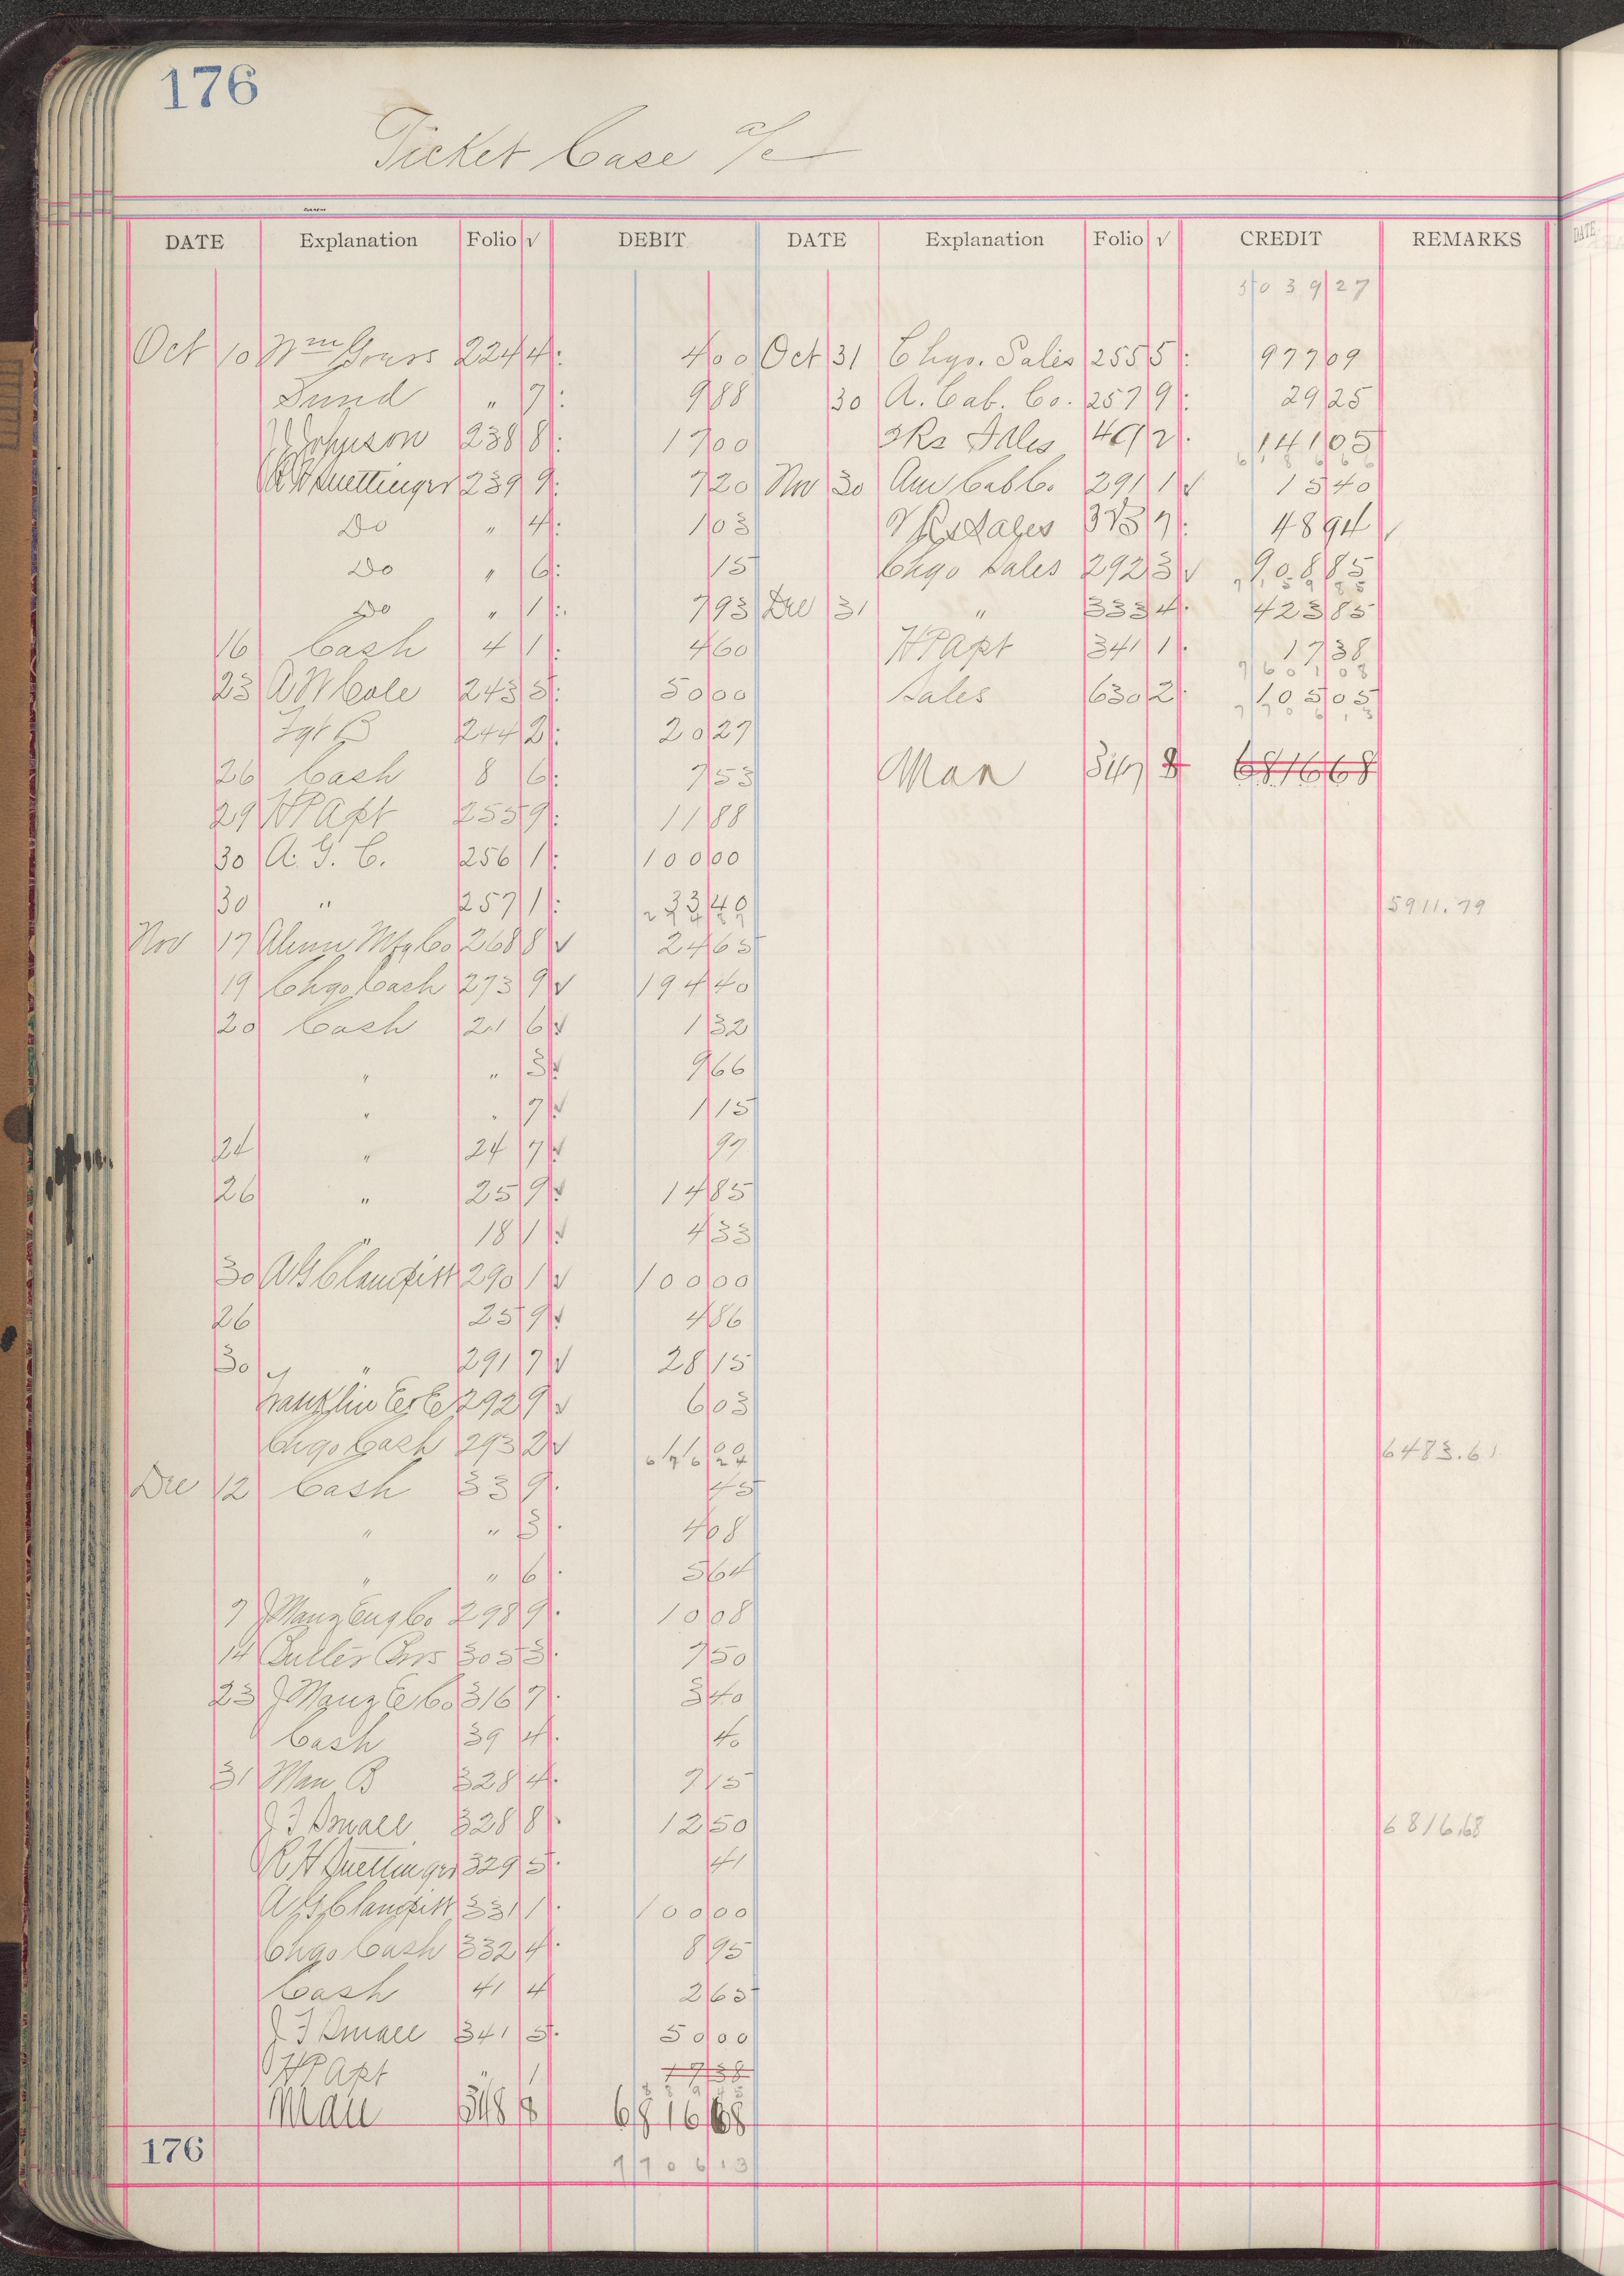 176
Ticket Case a/c
DATE Explanation Folio √ DEBIT DATE Explanation Folio √ CREDIT REMARKS
5039 27
Oct 10 Wm 224 4 : 4 00 Oct 31 Chgo. Sales 255 5 : 977 09
Sund " 7 : 9 88 30 A. Cab. Co. 257 9 : 29 25
J Johnson 238 8 : 17 00 Sales 2 . 141 05
6186 66
R H Suettinger 239 9 : 7 20 Nov 30 Am Cab Co. 291 1 √ 15 40
Do " 4 : 1 03 Sales 7 : 48 94 √
Do " 6 : 15 Chgo Sales 292 3 √ 908 85
7159 85
Do " 1 : 7 93 Dec 31 " 333 4 . 423 85
16 Cash 4 1 : 4 60 H P Apt 341 1 . 17 38
7601 08
23 A W Cole 243 5 : 50 00 Sales 630 2 . 105 05
7706 13
B 244 2 : 20 27
26 Cash 8 6 : 7 53 Man 347 8 6816 68
29 H P Apt 255 9 : 11 88
30 A. G. C. 256 1 : 100 00
30 " 257 1 : 33 40 5911.79
Nov 17 Alum Mfg Co 268 8 √ 24 65
19 Chgo Cash 273 9 √ 194 40
20 Cash 21 6 √ 1 32
" " 3 √ 9 66
" " 7 √ 1 15
24 " 24 7 √ 97
26 " 25 9 √ 14 85
" 18 1 √ 4 33
30 A G 290 1 √ 100 00
26 25 9 √ 4 86
30 " 291 7 √ 28 15
Franklin E & E 292 9 √ 6 03
Chgo Cash 293 2 √ 00 6483.61
676 24
Dec 12 Cash 33 9 . 45
" " 3 . 4 08
" " 6 . 5 64
7 J Manz Eng Co 298 9 . 10 08
14 Butler Bros 305 3 . 7 50
23 J Manz E Co 316 7 . 3 40
Cash 39 4 . 40
31 Man B 328 4 . 7 15
J F Small 328 8 . 12 50 6816.68
R H Suettinger 329 5 . 41
A G 331 1 . 100 00
Chgo Cash 332 4 . 8 95
Cash 41 4 2 65
J F Small 341 5 . 50 00
H P Apt " 1 17 38
889 45
Man 348 8 6816 68
176
7706 13